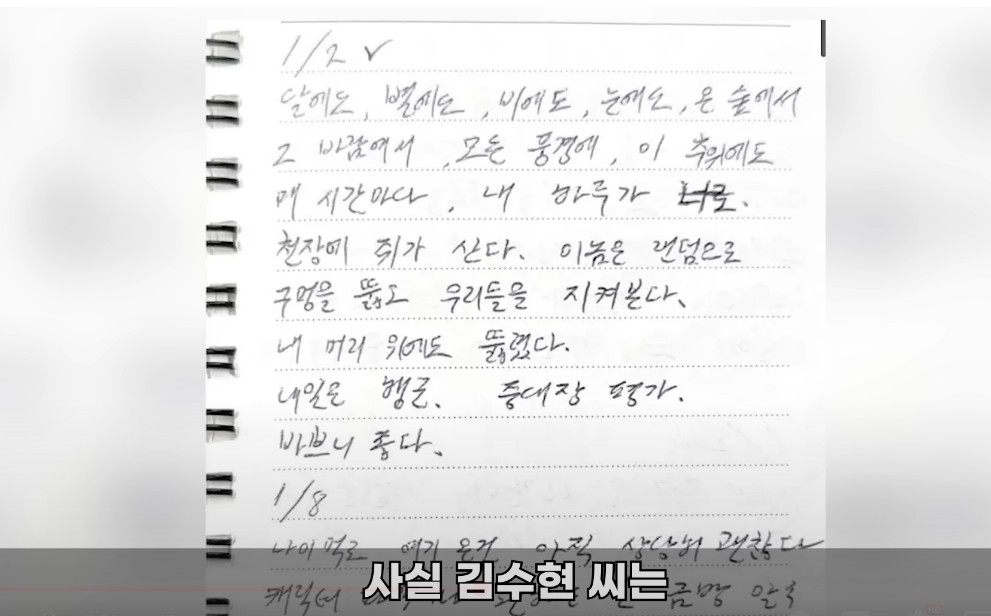 1/2 ✓
달에도, 별에도, 비에도, 눈에도, 온 숲에서
그 바람에서, 모든 풍경에, 이 추위에도
매 시간마다, 내 하루가 너로.
천장에 쥐가 산다. 이놈은 랜덤으로
구멍을 뚫고 우리들을 지켜본다.
내 머리 위에도 뚫렸다.
내일은 행군. 중대장 평가.
바쁘니 좋다.
1/8
나이먹고 여기 온거 아직 상당히 괜찮다
캐릭터 금방 알
사실 김수현 씨는